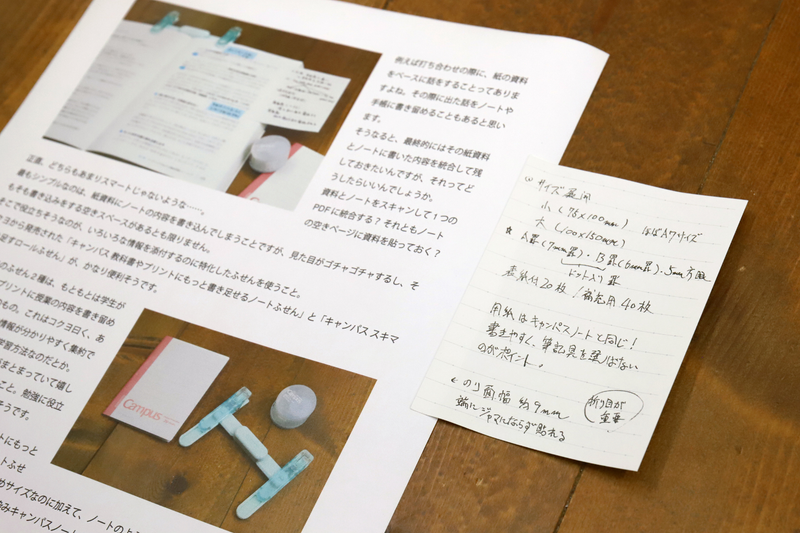 例えば打ち合わせの際に、紙の資料
をベースに話をすることってありま
すよね。その際に出た話をノートや
手帳に書き留めることもあると思い
ます。
そうなると、最終的にはその紙資料
とノートに書いた内容を統合して残
しておきたいんですが、それってど
うしたらいいんでしょうか。
資料とノートをスキャンして1つの
PDFに統合する？それともノート
の空きページに資料を貼っておく？
正直、どちらもあまりスマートじゃないような──。
最もシンプルなのは、紙資料にノートの内容を書き込んでしまうことですが、見た目がゴチャゴチャするし、そ
もそも書き込みをする空きスペースがあるとも限りません。
そこで役立ちそうなのが、いろいろな情報を添付するのに特化したふせんを使うこと。
ヨから発売された「キャンパス 教科書やプリントにもっと書き足せるノートふせん」と「キャンパス スキマ
足すロールふせん」が、かなり便利そうです。
のふせん2種は、もともとは学生が
プリントに授業の内容を書き留め
もの。これはコクヨ曰く、あ
情報が分かりやすく集約で
学習方法なのだとか。
がまとまっていて嬉し
こと。勉強に役立
そうです。
Campus
トにもっと
トふせ
めサイズなのに加えて、ノートの上
サイズ展開
小(75×100mm)
大(100×150mm) ほぼA7サイズ
★ A罫(7mm罫)・B罫(6mm罫)・5mm方眼
ドット入り罫
表紙付20枚/補充用40枚
用紙はキャンパスノートと同じ!
書きやすく、筆記具を選ばない
のがポイント.
← のり面幅 約9mm
端にジャマにならず貼れる
折り目が
重要